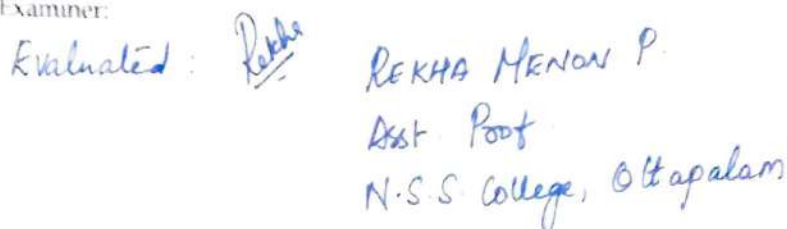 Examiner:
Evaluated : Rekha
REKHA MENON P.
Asst. Prof.
N.S.S. College, Ottapalam